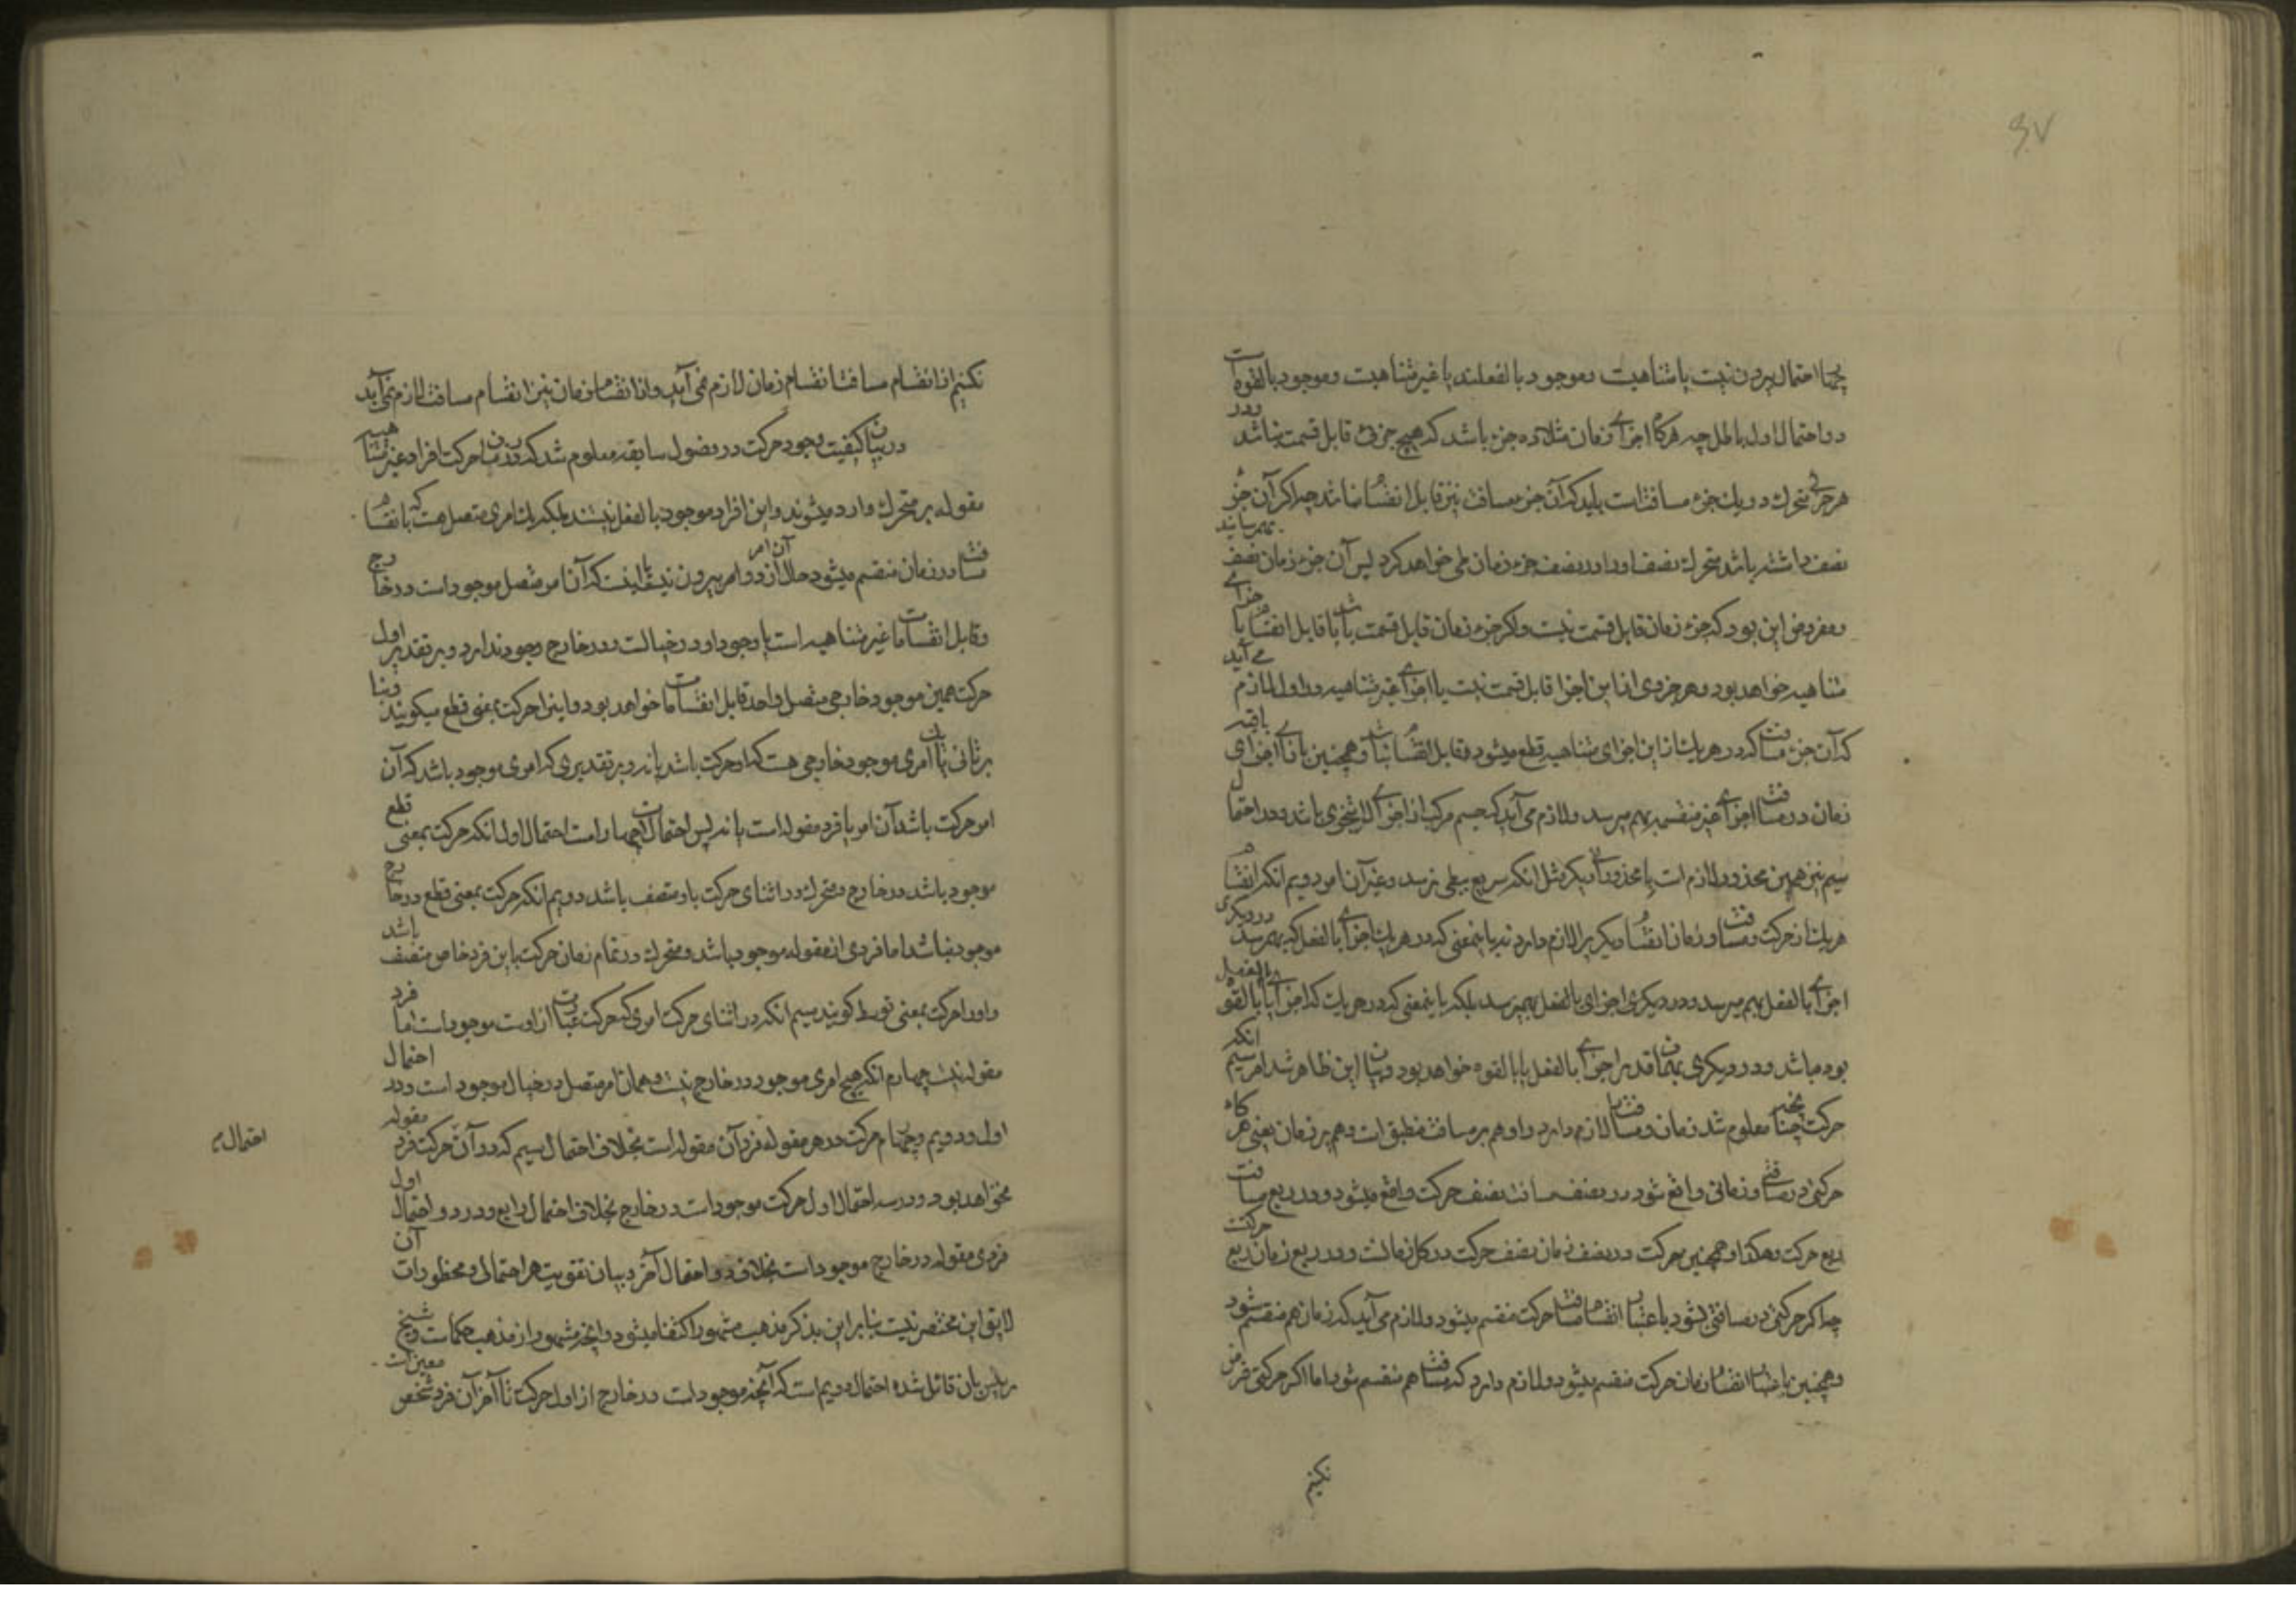 چهار احتمال بیرون نیست یا متناهیست و موجود بالفعلند یا غیر متناهیست و موجود بالقوه است
دو احتمال اول باطل چه هرگاه اجزای زمان مثلا ده جزء باشد که هیچ جزئی قابل قسمت نباشد و در
هر جزئی متحرک در یک جزء مسافتست باید که آن جزء مسافت نیز قابل انقسام نباشد چه اگر آن جزء
نصف داشته باشد متحرک نصف او را در نصف جزء زمان طی خواهد کرد پس آن جزء زمان نصف بهم رسانید
و مفروض این بود که جزء زمان قابل قسمت نیست و اگر جزء زمان قابل قسمت باشد یا قابل انقسام باجزای
متناهیه خواهد بود و هر جزوی از این اجزا قابل قسمت نیست یا اجزای غیر متناهیه و بر اول لازم می آید
که آن جزء مسافت که در هر یک از این اجزای متناهیه قطع میشود قابل انقسام نباشد و همچنین تا اجزای باقیه
زمان و در مسافت اجزای غیر منقسمه بهم میرسد و لازم می آید که جسم مرکب از اجزای لایتجزی باشد و در احتمال
سیم نیز همین محذور لازم است با محذورات دیگر مثل انکه سریع ببطی نرسد و غیر آن امر دویم انکه انقسام
هر یک از حرکت و مسافت و زمان انقسام دیگر را لازم دارد نه باینمعنی که در هر یک اجزای بالفعل که بهم رسد در دیگری
اجزای بالفعل بهم میرسد و در دیگری اجزای بالفعل بهم رسد بلکه باینمعنی که در هر یک که اجزای بالقوه یا بالفعل
بوده باشد در دیگری بهمان قدر اجزای بالفعل یا بالقوه خواهد بود و بیان این ظاهر شد امر سیم انکه
حرکت چنانچه معلوم شد زمان و مسافت را لازم دارد و او هم بر مسافت منطبق است و هم بر زمان یعنی هرگاه
حرکتی در مسافتی و زمانی واقع شود در نصف مسافت نصف حرکت واقع میشود و در ربع مسافت
ربع حرکت و هکذا و همچنین حرکت در نصف زمان نصف حرکت در کل زمانست و در ربع زمان ربع حرکت
چه اگر حرکتی در مسافتی بشود باعتبار انقسام مسافت حرکت منقسم میشود و لازم می آید که زمان هم منقسم شود
و همچنین باعتبار انقسام زمان حرکت منقسم میشود و لازم دارد که مسافت هم منقسم شود اما اگر حرکتی فرض
نکنیم
نکنیم از انقسام مسافت انقسام زمان لازم نمی آید و از انقسام زمان نیز انقسام مسافت لازم نمی آید
در بیان کیفیت وجود حرکت در فصول سابقه معلوم شد که در زمان حرکت افراد غیر متناهیه
مقوله بر متحرک وارد میشوند و این افراد موجود بالفعل نیستند بلکه یک امری متصل هست که بانقسام
مسافت و زمان منقسم میشود حالا آن امر از دو امر بیرون نیست یا اینست که آن امر متصل موجود است در خارج
و قابل انقسامات غیر متناهیه است یا وجود او در خیالست و در خارج وجود ندارد و بر تقدیر اول
حرکت همین موجود خارجی متصل واحد قابل انقسامات خواهد بود و اینرا حرکت بمعنی قطع میگویند و بنا
بر ثانی یا امری موجود خارجی هست که او حرکت باشد یا نه و بر تقدیری که امری موجود باشد که آن
امر حرکت باشد آن امر یا فرد مقوله است یا نه پس احتمالات چهار است احتمال اول انکه حرکت بمعنی قطع
موجود باشد در خارج و متحرک در اثنای حرکت باو متصف باشد دویم انکه حرکت بمعنی قطع در خارج
موجود نباشد اما فردی از مقوله موجود باشد و متحرک در تمام زمان حرکت باین فرد خاص متصف باشد
و او را حرکت بمعنی توسط گویند سیم انکه در اثنای حرکت امری که حرکت عبارت از اوست موجود است اما فرد
مقوله نیست چهارم انکه هیچ امری موجود در خارج نیست و همان امر متصل در خیال موجود است و در احتمال
اول و دویم و چهارم حرکت در هر مقوله فرد آن مقوله است بخلاف احتمال سیم که در آن حرکت فرد مقوله
احتمال
نخواهد بود و در سه احتمال اول حرکت موجود است در خارج بخلاف احتمال رابع و در دو احتمال اول
فردی مقوله در خارج موجود است بخلاف دو احتمال آخر و بیان تقویت هر احتمالی و محظورات آن
لایق این مختصر نیست بنابر این بذکر مذهب مشهور اکتفا میشود و انچه مشهور از مذهب حکماست و شیخ
رئیس بان قائل شده احتمال دویم است که آنچه موجود است در خارج از اول حرکت تا آخر آن فرد شخص معین است